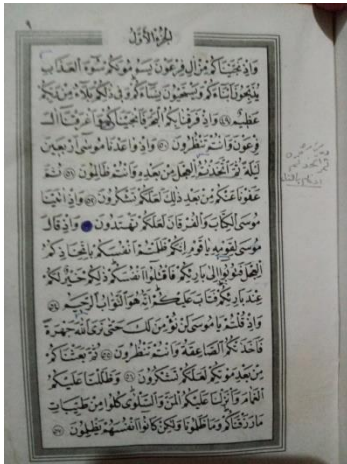 ٩
الجزء الأول
وَاِذْ نَجَّيْنَاكُمْ مِنْ اٰلِ فِرْعَوْنَ يَسُومُونَكُمْ سُوٓءَ الْعَذَابِ
يُذَبِّحُونَ اَبْنَٓاءَكُمْ وَيَسْتَحْيُونَ نِسَٓاءَكُمْ وَفِى ذٰلِكُمْ بَلَٓاءٌ مِنْ رَبِّكُمْ
عَظِيمٌ وَاِذْ فَرَقْنَا بِكُمُ الْبَحْرَ فَاَنْجَيْنَاكُمْ وَاَغْرَقْنَٓا اٰلَ
فِرْعَوْنَ وَاَنْتُمْ تَنْظُرُونَ وَاِذْ وٰعَدْنَا مُوسٰٓى اَرْبَعِينَ
لَيْلَةً ثُمَّ اتَّخَذْتُمُ الْعِجْلَ مِنْ بَعْدِهِ وَاَنْتُمْ ظَالِمُونَ ثُمَّ
عَفَوْنَا عَنْكُمْ مِنْ بَعْدِ ذٰلِكَ لَعَلَّكُمْ تَشْكُرُونَ وَاِذْ اٰتَيْنَا
مُوسَى الْكِتَابَ وَالْفُرْقَانَ لَعَلَّكُمْ تَهْتَدُونَ وَاِذْ قَالَ
مُوسٰى لِقَوْمِهِ يَا قَوْمِ اِنَّكُمْ ظَلَمْتُمْ اَنْفُسَكُمْ بِاتِّخَاذِكُمُ
الْعِجْلَ فَتُوبُٓوا اِلٰى بَارِئِكُمْ فَاقْتُلُٓوا اَنْفُسَكُمْ ذٰلِكُمْ خَيْرٌ لَكُمْ
عِنْدَ بَارِئِكُمْ فَتَابَ عَلَيْكُمْ اِنَّهُ هُوَ التَّوَّابُ الرَّحِيمُ
وَاِذْ قُلْتُمْ يَا مُوسٰى لَنْ نُؤْمِنَ لَكَ حَتّٰى نَرَى اللّٰهَ جَهْرَةً
فَاَخَذَتْكُمُ الصَّاعِقَةُ وَاَنْتُمْ تَنْظُرُونَ ثُمَّ بَعَثْنَاكُمْ
مِنْ بَعْدِ مَوْتِكُمْ لَعَلَّكُمْ تَشْكُرُونَ وَظَلَّلْنَا عَلَيْكُمُ
الْغَمَامَ وَاَنْزَلْنَا عَلَيْكُمُ الْمَنَّ وَالسَّلْوٰى كُلُوا مِنْ طَيِّبَاتِ
مَا رَزَقْنَاكُمْ وَمَا ظَلَمُونَا وَلٰكِنْ كَانُٓوا اَنْفُسَهُمْ يَظْلِمُونَ